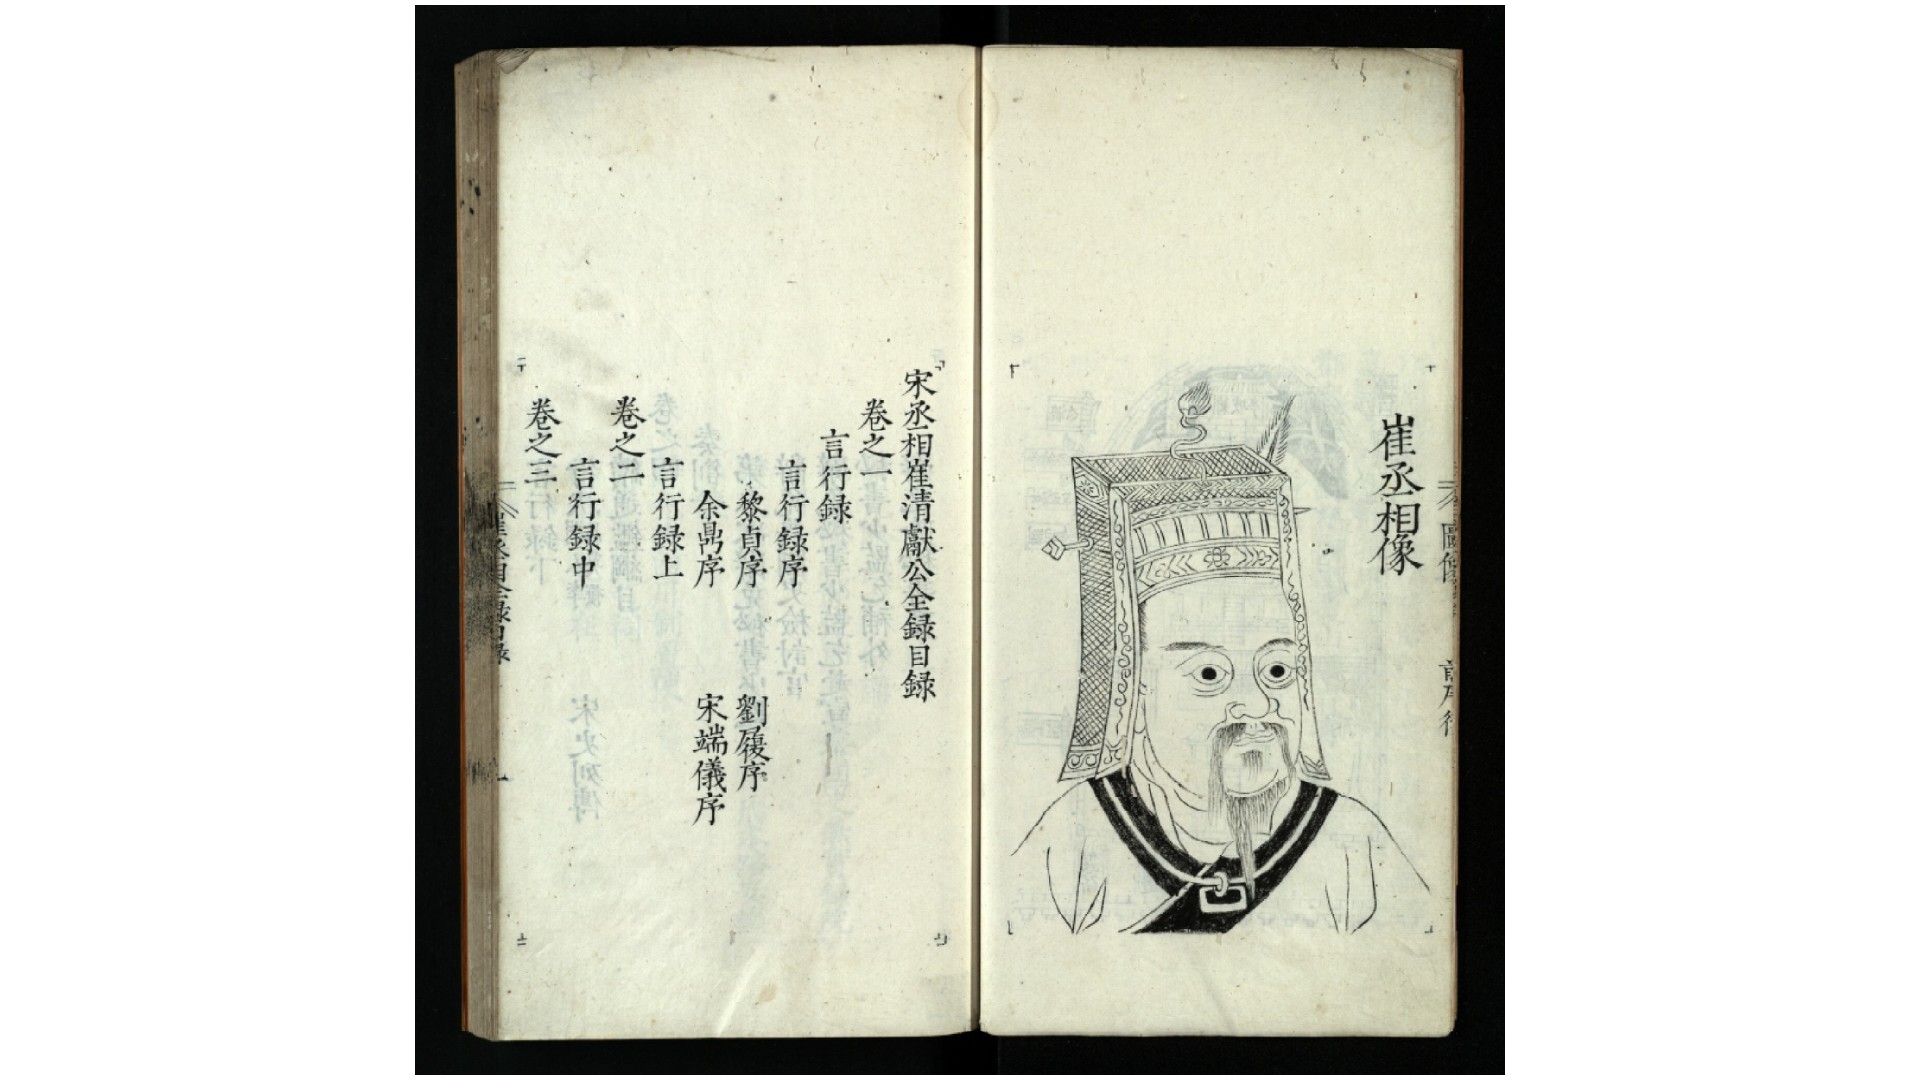 崔丞相像
宋丞相崔清獻公全録目録
卷之一
言行録
言行録序
黎貞序 劉履序
余鼎序 宋端儀序
言行録上
卷之二
言行録中
卷之三